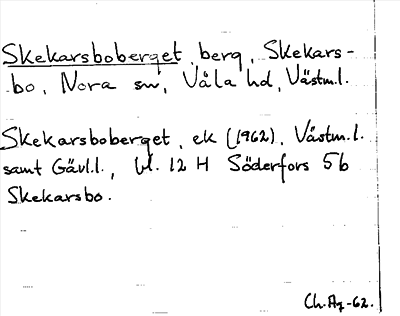 Skekarsboberget, berg, Skekars-
bo, Nora sn, Våla hd, Västm.l.
Skekarsboberget, ek (1962), Västm.l.
samt Gävl.l., bl. 12 H Söderfors 5b
Skekarsbo.
Ch. Ag -62.